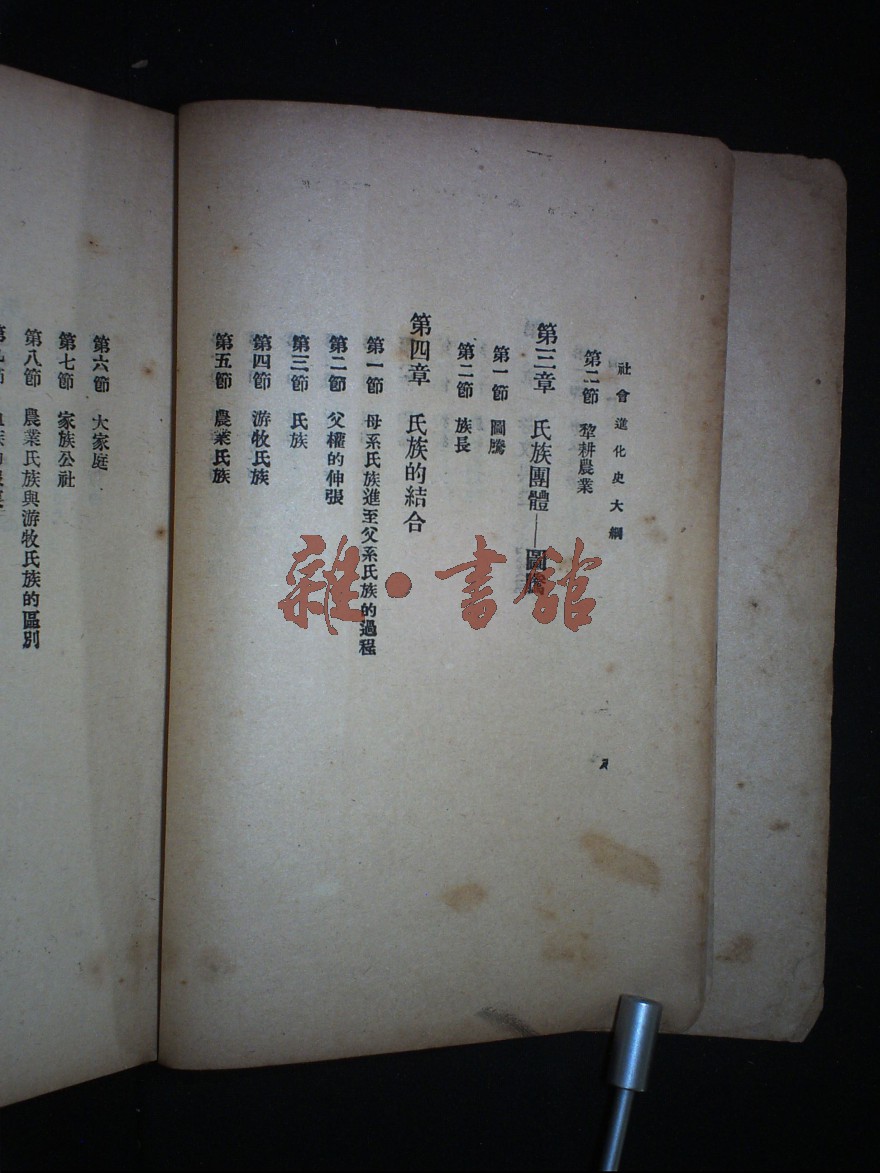 社會進化史大綱
第二節 犂耕農業
第三章 氏族團體——圖騰
第一節 圖騰
第二節 族長
第四章 氏族的結合
第一節 母系氏族進至父系氏族的過程
第二節 父權的伸張
第三節 氏族
第四節 游牧氏族
第五節 農業氏族
第六節 大家庭
第七節 家族公社
第八節 農業氏族與游牧氏族的區別
雜·書館